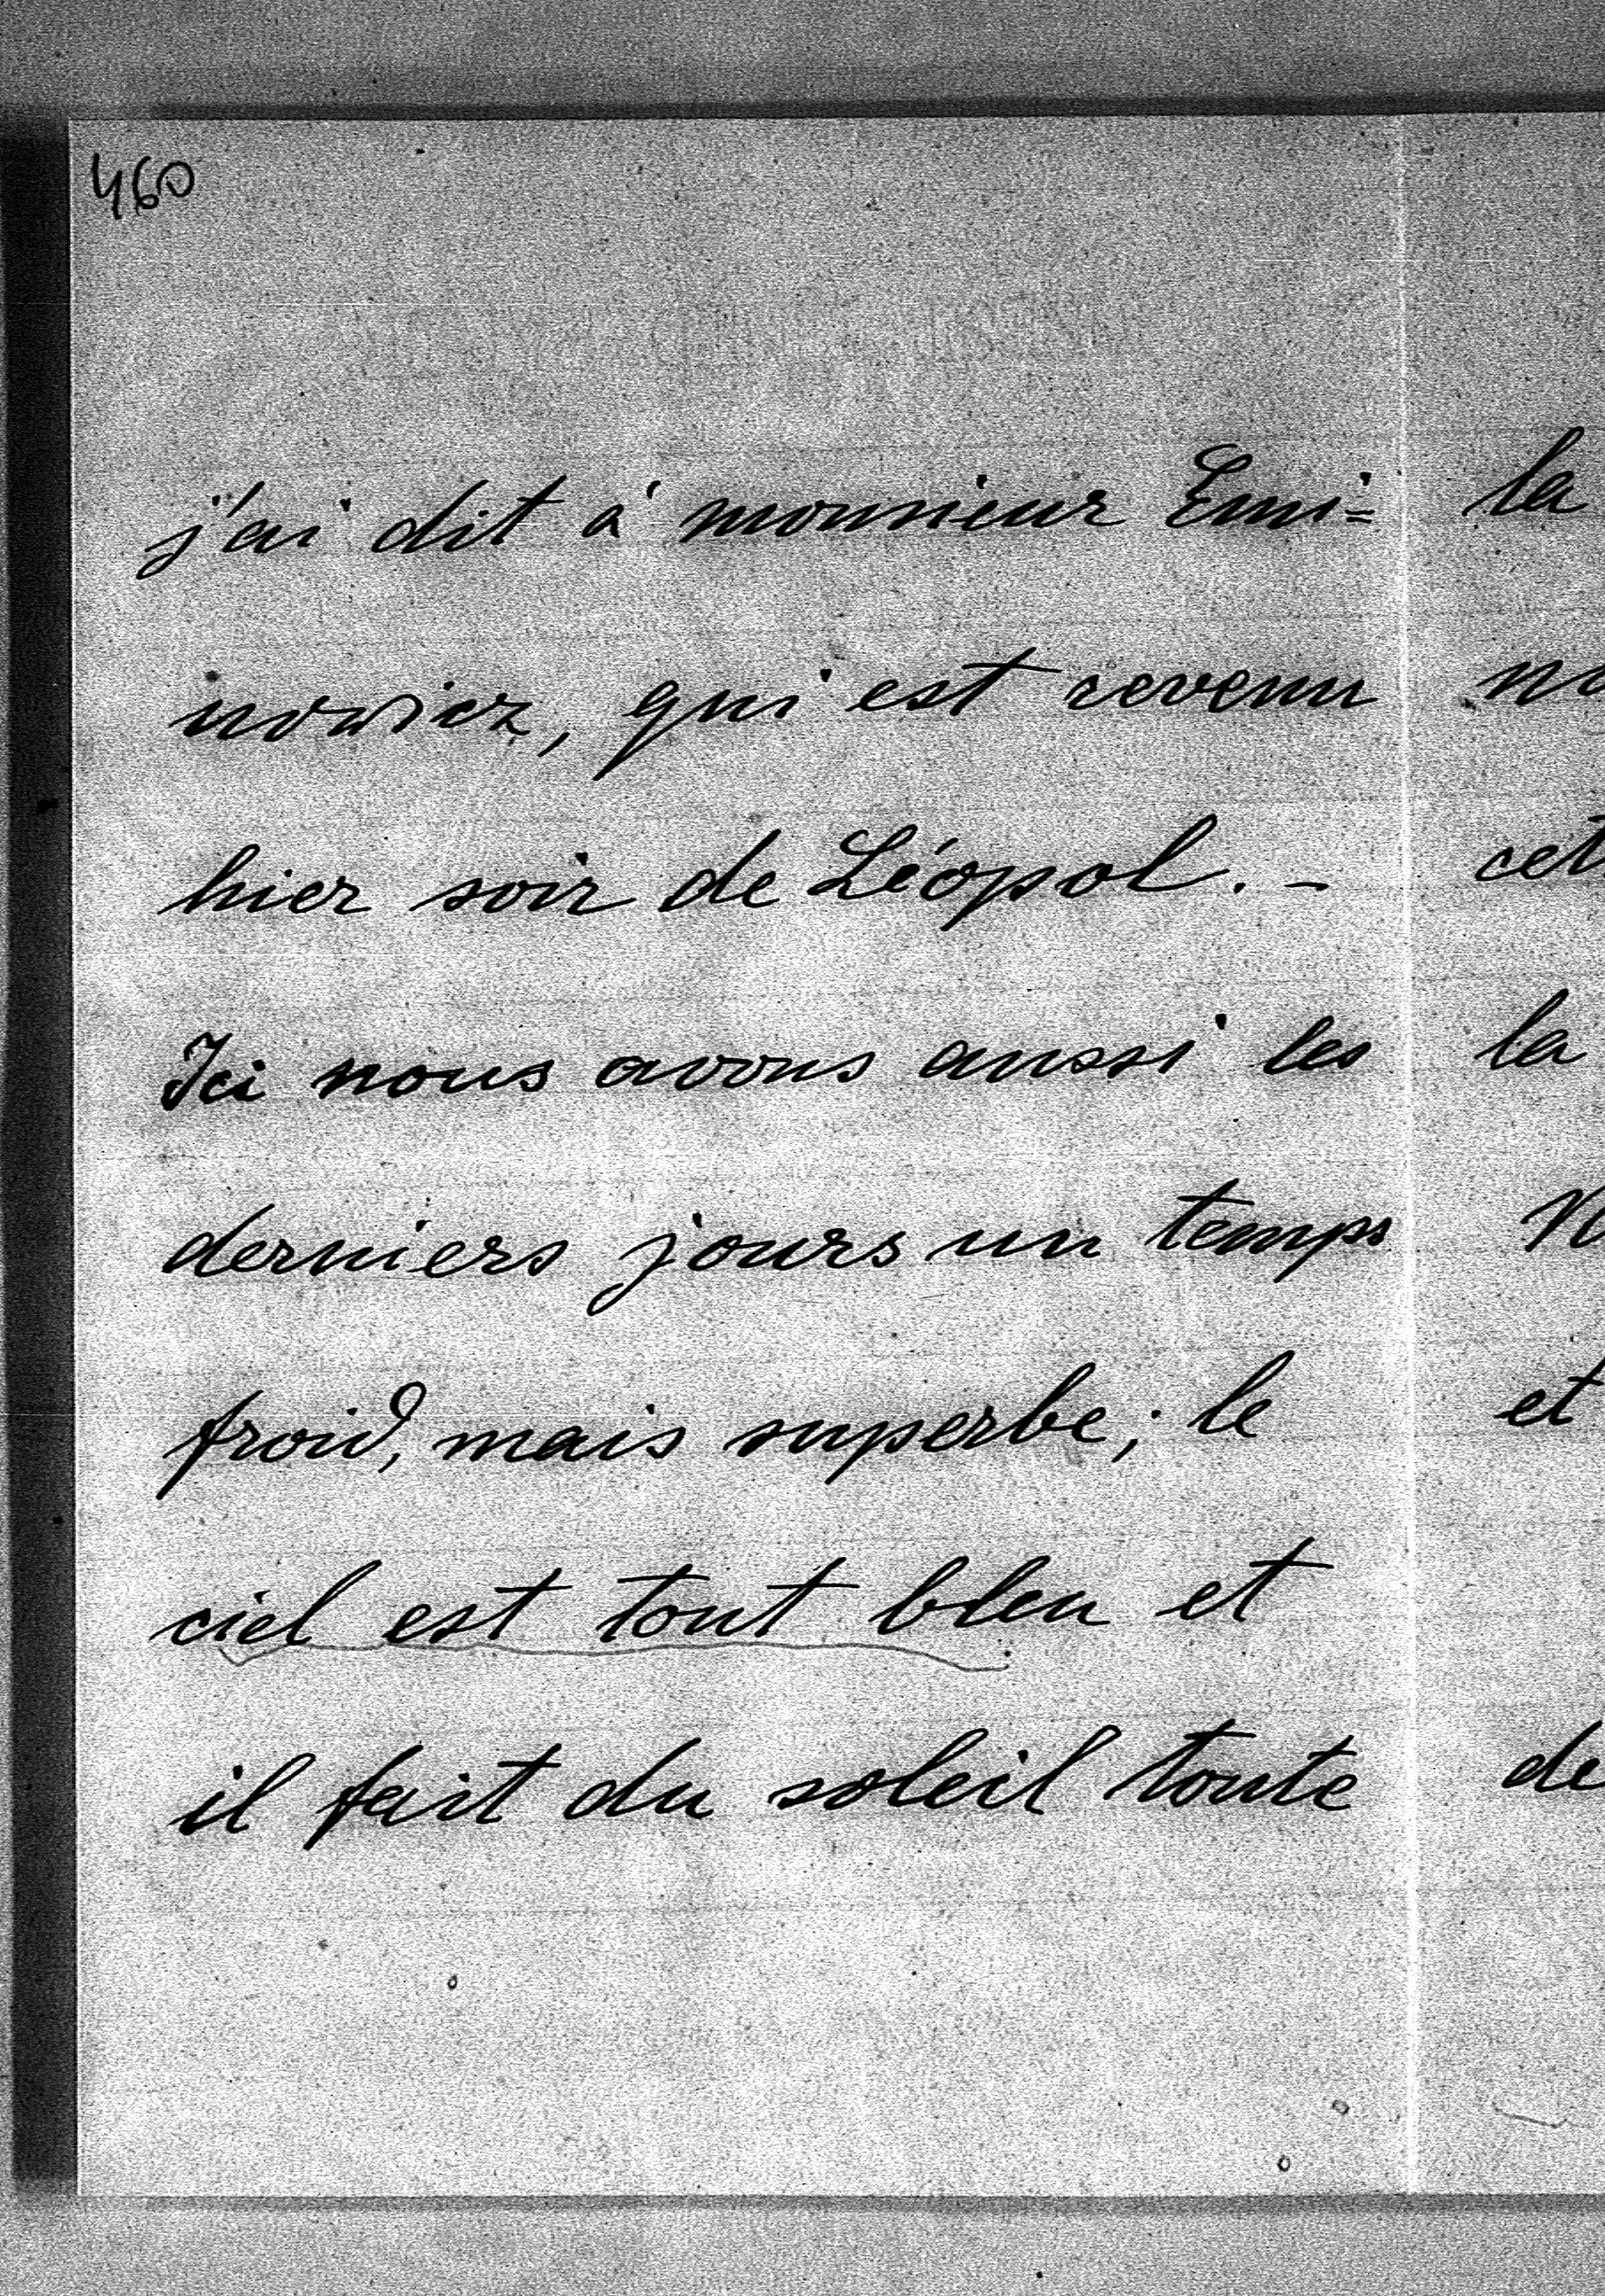 460
j'ai dit à monsieur Emi=
nowicz, qui est revenu
hier soir de Léopol. -
Ici nous avons aussi les
derniers jours un temps
froid, mais superbe; le
ciel est tout bleu et
il fait du soleil toute
la
cet
la
et
de